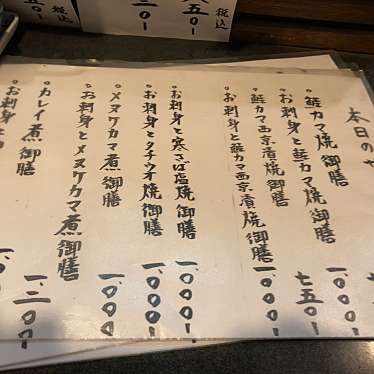 本日の
。鮭カマ焼御膳
。お刺身と鮭カマ焼御膳
。鮭カマ西京漬焼御膳 七五〇-
。お刺身と鮭カマ西京漬焼御膳 一、〇〇〇-
。お刺身と寒さば塩焼御膳 一、〇〇〇-
。お刺身とタチウオ焼御膳 一、〇〇〇-
。メヌケカマ煮御膳 一、〇〇〇-
。お刺身とメヌケカマ煮御膳
。カレイ煮御膳
。お刺身と
五〇- 税込
税込